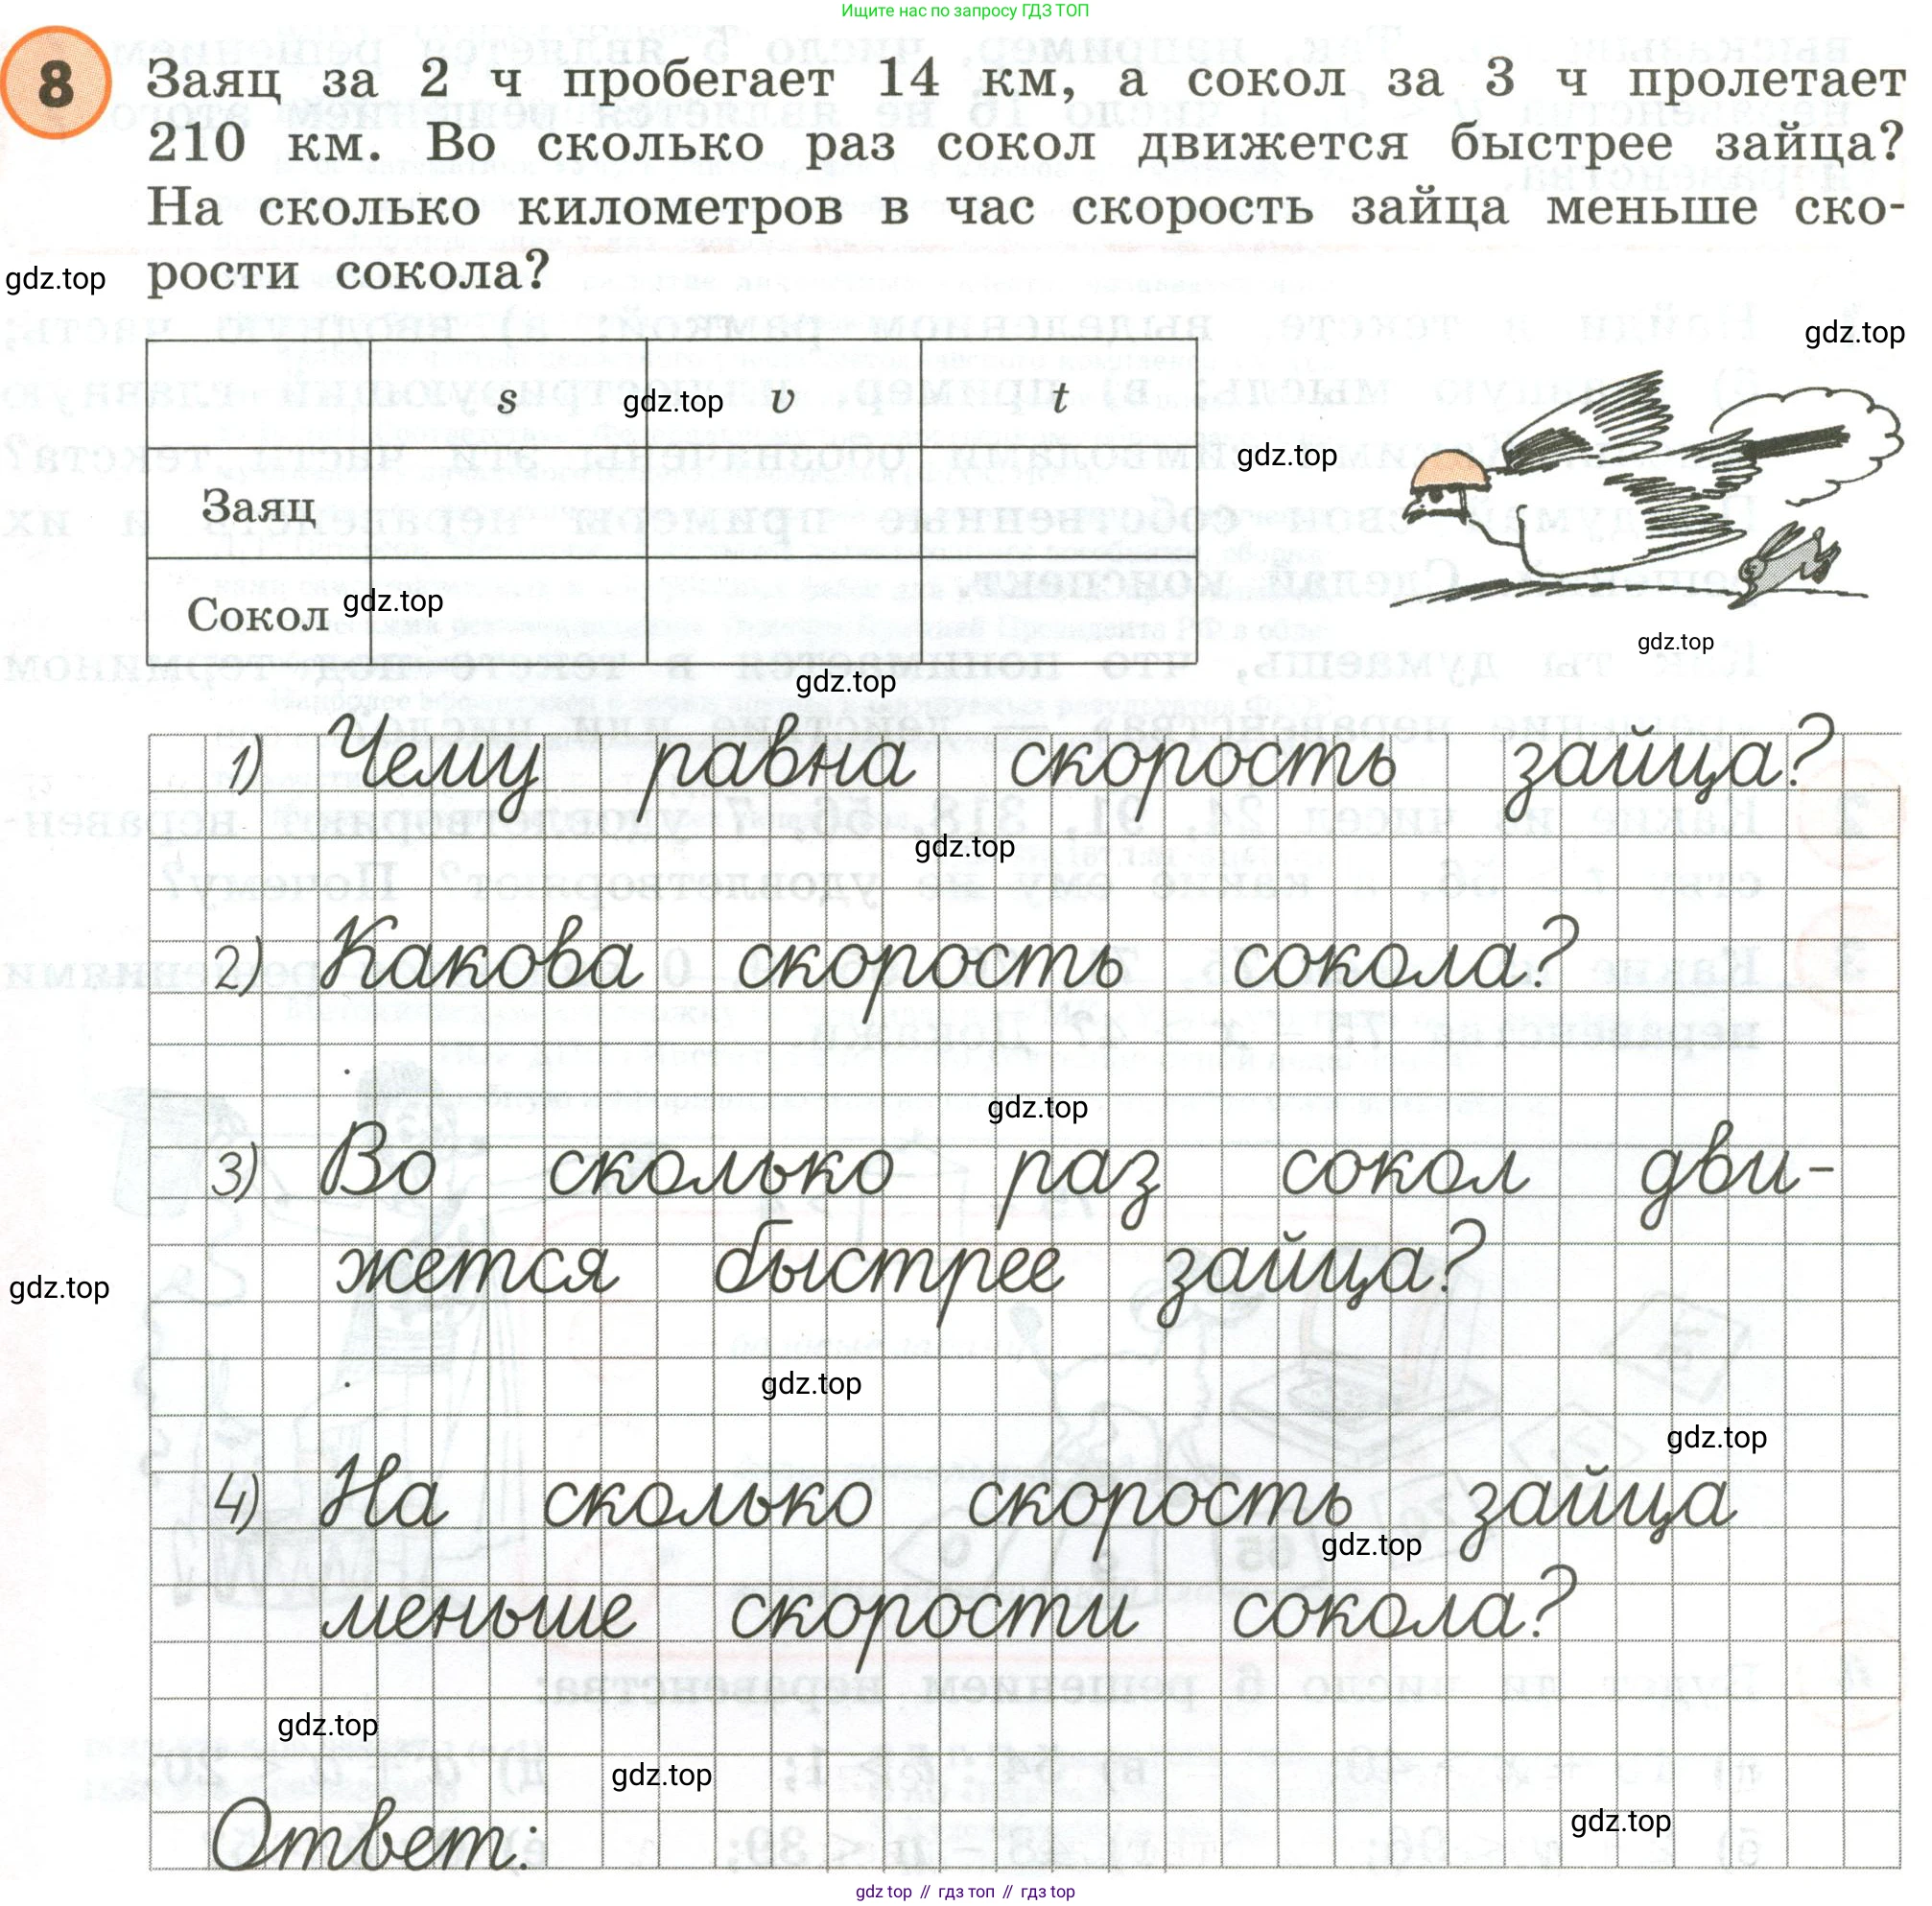 Ищите нас по запросу ГДЗ ТОП
8 Заяц за 2 ч пробегает 14 км, а сокол за 3 ч пролетает
210 км. Во сколько раз сокол движется быстрее зайца?
На сколько километров в час скорость зайца меньше ско-
рости сокола?
gdz.top
gdz.top
s gdz.top v t
gdz.top
Заяц
Сокол gdz.top
gdz.top
gdz.top
1) Чему равна скорость зайца?
gdz.top
2) Какова скорость сокола?
gdz.top
3) Во сколько раз сокол дви-
жется быстрее зайца?
gdz.top
gdz.top
gdz.top
4) На сколько скорость зайца
gdz.top
меньше скорости сокола?
gdz.top
gdz.top
gdz.top
Ответ:
gdz top // гдз топ // гдз top